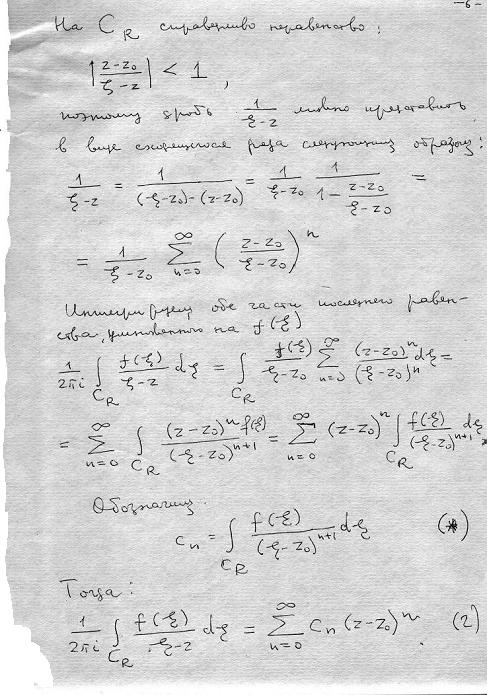 -6-
На C_R справедливо неравенство:
|z-z₀ / ξ-z| < 1 ,
поэтому дробь 1/(ξ-z) можно представить
в виде сходящегося ряда следующим образом:
1/(ξ-z) = 1/((ξ-z₀)-(z-z₀)) = 1/(ξ-z₀) · 1/(1 - (z-z₀)/(ξ-z₀)) =
= 1/(ξ-z₀) ∑_{n=0}^{∞} ((z-z₀)/(ξ-z₀))^n
Интегрируем обе части последнего равен-
ства, умноженного на f(ξ)
1/(2πi) ∫_{C_R} f(ξ)/(ξ-z) dξ = ∫_{C_R} f(ξ)/(ξ-z₀) ∑_{n=0}^{∞} (z-z₀)^n/(ξ-z₀)^n dξ =
= ∑_{n=0}^{∞} ∫_{C_R} (z-z₀)^n f(ξ)/(ξ-z₀)^{n+1} = ∑_{n=0}^{∞} (z-z₀)^n ∫_{C_R} f(ξ)/(ξ-z₀)^{n+1} dξ
Обозначим
c_n = ∫_{C_R} f(ξ)/(ξ-z₀)^{n+1} dξ (*)
Тогда:
1/(2πi) ∫_{C_R} f(ξ)/(ξ-z) dξ = ∑_{n=0}^{∞} c_n (z-z₀)^n. (2)